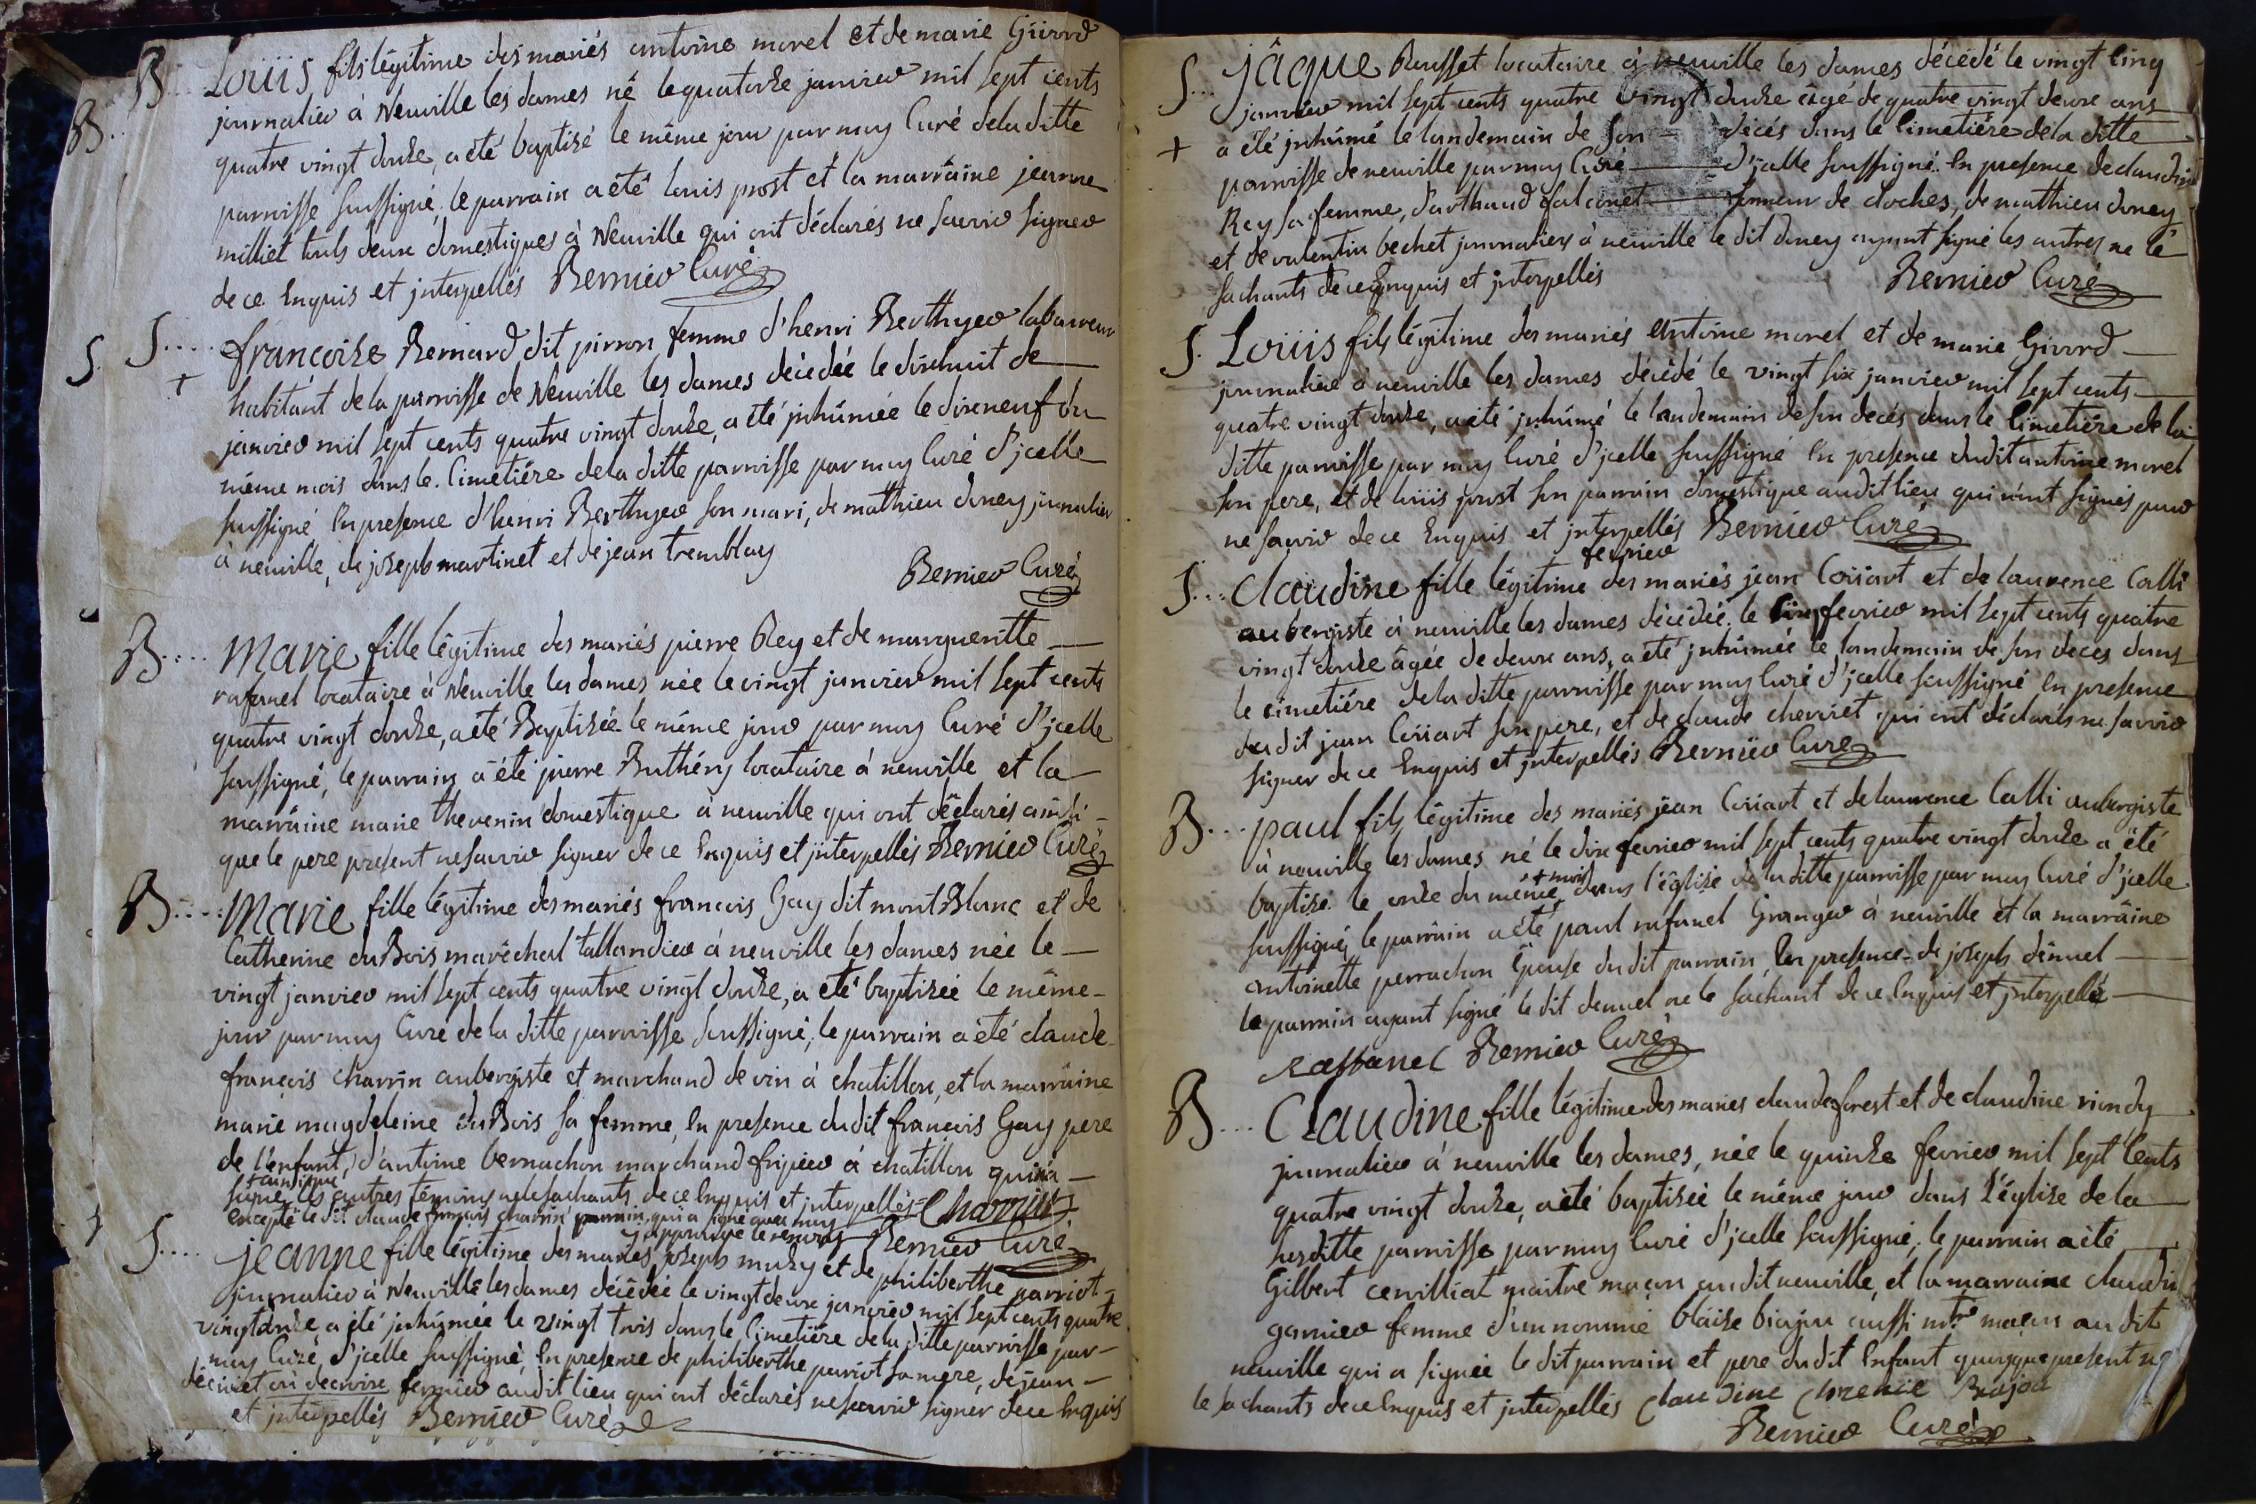 B... Loüis fils légitime des mariés antoine morel et de marie Givord
B.. journalier à Neuville les dames né le quatorze janvier mil sept cents
quatre vingt douze, a été baptisé le même jour par moy Curé de la ditte
parroisse soussigné, le parrain a été louis prost et la marraine jeanne
milliet touts deux domestiques à Neuville qui ont déclarés ne savoir signer
de ce Enquis et jnterpellés Bernier Curé
S.... francoise Bernard dit pirron femme d'henri Berthyer laboureur
S. + habitant de la parroisse de Neuville les dames décédée le dixhuit de
janvier mil sept cents quatre vingt douze, a été jnhûmée le dixneuf du
même mois dans le Cimetiére de la ditte parroisse par moy Curé d'jcelle
soussigné En presence d'henri Berthyer son mari, de mathieu doney journalier
à neuville, de joseph martinet et de jean tremblay
Bernier Curé
B.... Marie fille légitime des mariés pierre Rey et de margueritte
rafanel locataire à Neuville les dames née le vingt janvier mil sept cents
quatre vingt douze, a été Baptisée le même jour par moy Curé d'jcelle
soussigné, le parrain a été pierre Buthéry locataire à neuville et la
marraine marie thevenin domestique à neuville qui ont déclarés ainsi
que le pere present ne savoir signer de ce Enquis et jnterpellés Bernier Curé
B.... Marie fille légitime des mariés francois Gay dit montBlanc et de
Catherine duBois maréchal tallandier à neuville les dames née le
vingt janvier mil sept cents quatre vingt douze, a été baptisée le même
jour par moy Curé de la ditte parroisse soussigné, le parrain a été claude
françois charrin aubergiste et marchand de vin à chatillon, et la marraine
marie magdeleine duBois sa femme, En presence dudit françois Gay pere
de l'enfant, d'antoine bernachon marchand fripier à chatillon qui n'a
signé les autres témoins ne le sachants de ce Enquis et jnterpellés Charrin
excepté le dit claude françois charrin parrain qui a signé avec moy
j'approuve le renvoy Bernier Curé
S.... jeanne fille légitime des mariés joseph muzy et de philiberthe parriot
journalier à Neuville les dames décédée le vingt deux janvier mil sept cents quatre
vingt douze, a été jnhûmée le vingt trois dans le Cimetiére de la ditte parroisse par
moy Curé d'jcelle soussigné, En presence de philiberthe parriot sa mere, de jean
fermier audit lieu qui ont déclarés ne savoir signer de ce Enquis
et jnterpellés Bernier Curé
S... jâque Rousset locataire à neuville les dames décédé le vingt cinq
janvier mil sept cents quatre vingt douze âgé de quatre vingt deux ans
+ a été jnhûmé le landemain de son décés dans le Cimetiére de la ditte
parroisse de neuville par moy Curé d'jcelle soussigné. En presence de claudine
Rey sa femme, d'arthaud falconet sonneur de cloches, de mathieu doney
et de valentin bechet journaliers à neuville le dit doney ayant signé les autres ne le
sachants de ce Enquis et jnterpellés Bernier Curé
S. Loüis fils légitime des mariés antoine morel et de marie Givord
journalier à neuville les dames décédé le vingt six janvier mil sept cents
quatre vingt douze, a été jnhûmé le landemain de son decés dans le Cimetiére de la
ditte parroisse par moy Curé d'jcelle soussigné En presence dudit antoine morel
son pere, et de loüis prost son parrain domestique audit lieu qui n'ont signés pour
ne savoir de ce Enquis et jnterpellés Bernier Curé
fevrier
S... Claudine fille légitime des mariés jean Coriart et de laurence Calli
aubergiste à neuville les dames décédée le fevrier mil sept cents quatre
vingt douze âgée de deux ans, a été jnhûmée le landemain de son deces dans
le cimetiére de la ditte parroisse par moy Curé d'jcelle soussigné En presence
du dit jean Coriart son pere, et de claude cherriet qui ont déclarés ne savoir
signer de ce Enquis et jnterpellés Bernier Curé
B... paul fils légitime des mariés jean Coriart et de laurence Calli aubergiste
à neuville les dames né le dix fevrier mil sept cents quatre vingt douze a été
baptisé le onze du même + mois dans l'église de la ditte parroisse par moy Curé d'jcelle
soussigné, le parrain a été paul rafanel Granger à neuville et la marraine
antoinette perrachon Epouse du dit parrain, En presence de joseph démel
le parrain ayant signé le dit demel ne le sachant de ce Enquis et jnterpellé
Raffanel Bernier Curé
B... Claudine fille légitime des mariés claude forest et de claudine riondy
journalier à neuville les dames, née le quinze fevrier mil sept Cents
quatre vingt douze, a été baptisée le même jour dans l'église de la
susditte parroisse par moy Curé d'jcelle soussigné, le parrain a été
Gilbert cervilliat maitre maçon audit neuville, et la marraine claudine
garnier femme d'un nommé blaise biajou aussi mtre maçon au dit
neuville qui a signée le dit parrain et pere du dit Enfant quoyque present ne
le sachants de ce Enquis et jnterpellés Claudine Biajou
Bernier Curé